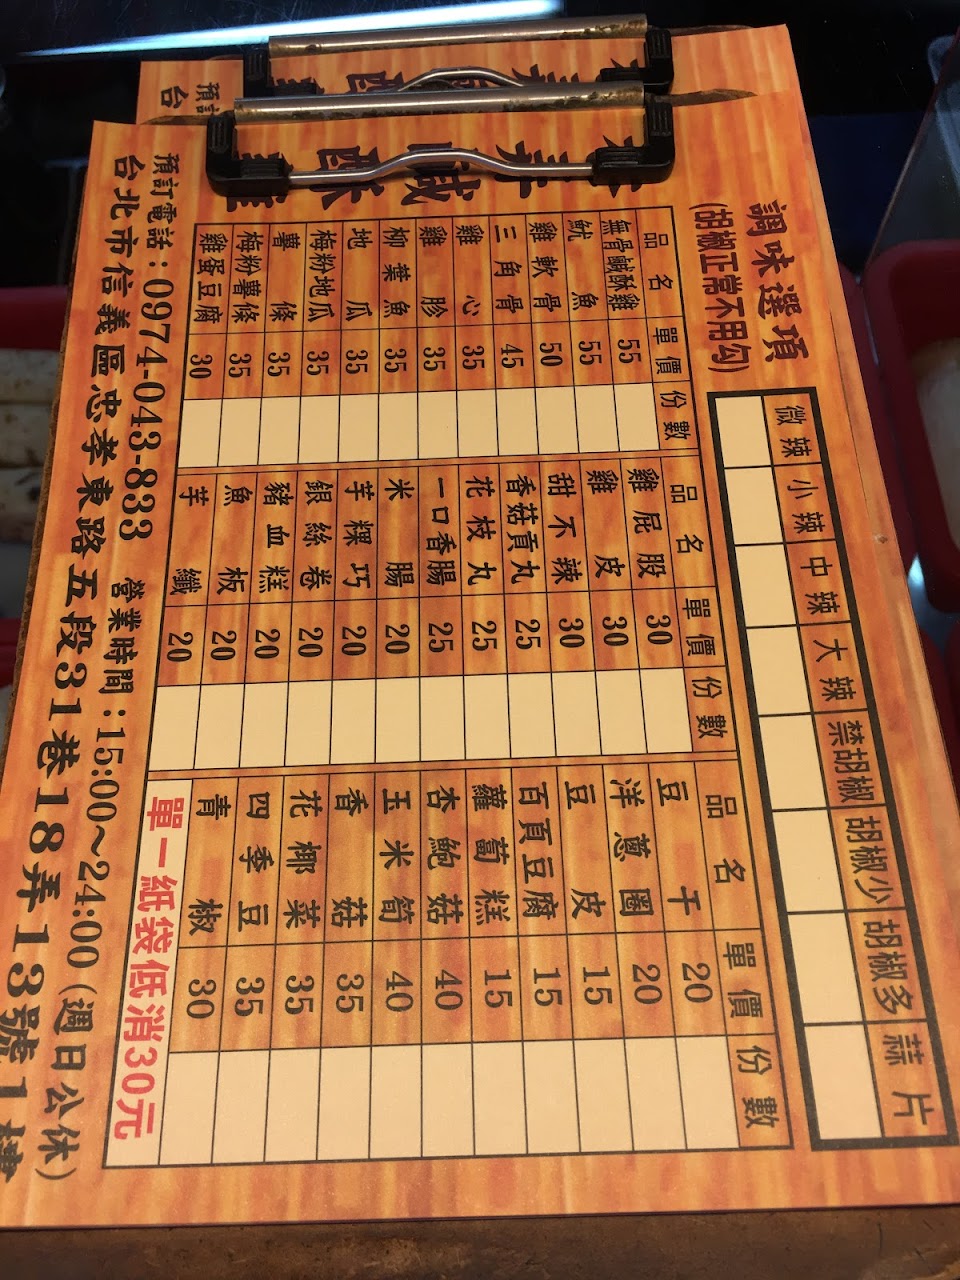 預訂
台
鹹酥雞
調味選項
(胡椒正常不用勾)
微辣 小辣 中辣 大辣 禁胡椒 胡椒少 胡椒多 蒜片
品名 單價 份數 品名 單價 份數 品名 單價 份數
無骨鹹酥雞 55 雞屁股 30 豆干 20
魷魚 55 雞皮 30 洋蔥圈 20
雞軟骨 50 甜不辣 30 豆皮 15
三角骨 45 香菇貢丸 25 百頁豆腐 15
雞心 35 花枝丸 25 蘿蔔糕 15
雞胗 35 一口香腸 25 杏鮑菇 40
柳葉魚 35 米腸 20 玉米筍 40
地瓜 35 芋粿巧 20 香菇 35
梅粉地瓜 35 銀絲卷 20 花椰菜 35
薯條 35 豬血糕 20 四季豆 35
梅粉薯條 35 魚板 20 青椒 30
雞蛋豆腐 30 芋纖 20 單一紙袋低消30元
預訂電話：0974-043-833 營業時間：15:00～24:00(週日公休)
台北市信義區忠孝東路五段31巷18弄13號1樓